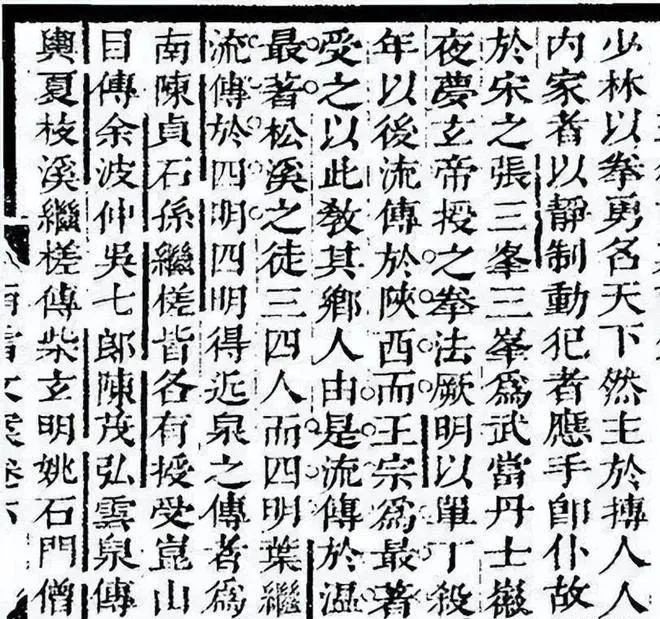 少林以拳勇名天下然主於搏人人
內家者以靜制動犯者應手卽仆故
於宋之張三峯三峯爲武當丹士徽
夜夢玄帝授之拳法厥明以單丁殺
年以後流傳於陝西而王宗爲最著
受之以此敎其鄉人由是流傳於温
最著松溪之徒三四人而四明葉繼
流傳於四明四明得近泉之傳者爲
南陳貞石孫繼槎皆各有授受崑山
目傳余波仲吳七郎陳茂弘雲泉傳
輿夏枝溪繼槎傳柴玄明姚石門僧